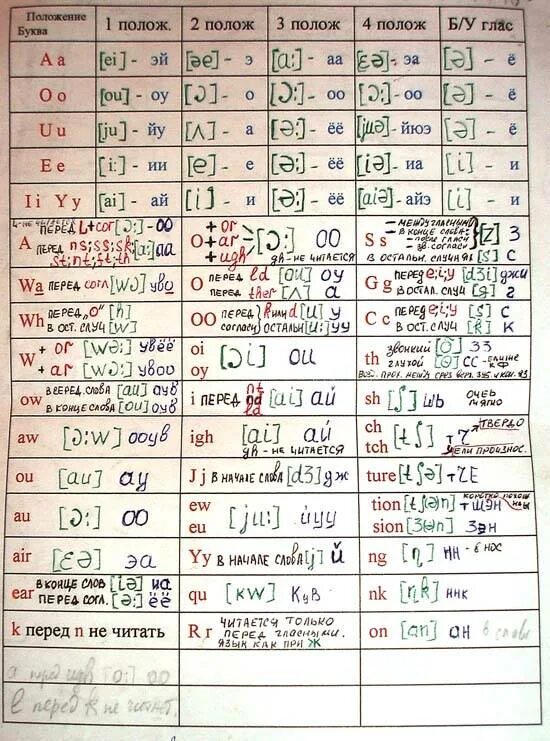 Положение Буква 1 полож. 2 полож 3 полож 4 полож Б/У глас
A a [ei] - эй [əe] - э [ɑ:] - аа [ɛə] - эа [ə] - ё
O o [ou] - оу [ɔ] - о [ɔ:] - оо [ɔ:] - оо [ə] - ё
U u [ju] - йу [ʌ] - а [ə:] - ёё [juə] - йюэ [ə] - ё
E e [i:] - ии [e] - е [ə:] - ёё [iə] - иа [i] - и
I i Y y [ai] - ай [i] - и [ə:] - ёё [aiə] - айэ [i] - и
A ПЕРЕД L+СОГ [ɔ:] - ОО
ПЕРЕД ns; ss; sk; st; nt; ft; th [a:] aa
O + or + ar + ugh = [ɔ:] ОО
gh - НЕ ЧИТАЕТСЯ
S s - МЕЖДУ ГЛАСНЫМИ
- В КОНЦЕ СЛОВА:
[z] З
В ОСТАЛЬН. СЛУЧАЯ [s] С
Wa ПЕРЕД СОГЛ [wɔ] уво
O ПЕРЕД ld [ou] оу
ПЕРЕД ther [ʌ] а
G g ПЕРЕД e; i; y [dʒi] джи
В ОСТ. СЛУЧ [g] г
Wh ПЕРЕД „о" [h]
В ОСТ. СЛУЧ [w]
OO ПЕРЕД k ИЛИ d [u] у
СОГЛАСН ОСТАЛЬН [u:] уу
C c ПЕРЕД e; i; y [s] с
В ОСТ. СЛУЧ [k] к
W + or [wə:] увёё
+ ar [wɔ:] увоо
oi oy [ɔi] ои
th ЗВОНКИЙ [ð] ЗЗ
ГЛУХОЙ [θ] СС
ow В СЕРЕД. СЛОВА [au] аув
В КОНЦЕ СЛОВА [ou] оув
i ПЕРЕД nt nd ld [ai] ай
sh [ʃ] шь ОЧЕНЬ МЯГКО
aw [ɔ:w] ооув
igh [ai] ай
gh - НЕ ЧИТАЕТСЯ
ch tch [tʃ] т ч ТВЕРДО
ЦЕЛИ ПРОИЗНОС.
ou [au] ау
J j В НАЧАЛЕ СЛОВА [dʒ] дж
ture [tʃə] + ТЧЕ
au [ɔ:] ОО
ew eu [ju:] йуу
tion [tʃən] тшэн
sion [ʒən] зэн
air [ɛə] эа
Yy В НАЧАЛЕ СЛОВА [j] й
ng [ŋ] нн - в нос
ear В КОНЦЕ СЛОВ [iə] иа
ПЕРЕД СОГЛ. [ə:] ёё
qu [kw] кув
nk [ŋk] ннк
k перед n не читать
R r ЧИТАЕТСЯ ТОЛЬКО
ПЕРЕД ГЛАСНЫМИ.
ЯЗЫК КАК ПРИ Ж
on [an] ан
а перед [ɔ:] оо
в перед k не читает.